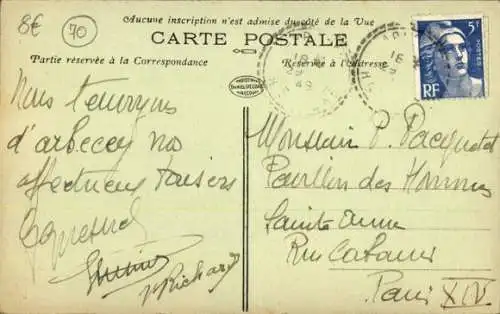 8€
70
Aucune inscription n'est admise du côté de la Vue
CARTE POSTALE
Partie réservée à la Correspondance
Réservé à l'Adresse
5F
POSTES
RF
16
49
Nous t'envoyons
d'arbecey nos
affectueux baisers
Richard
Monsieur P. Pacquetet
Pavillon des Hommes
Sainte Anne
Rue Cabanis
Paris XIV